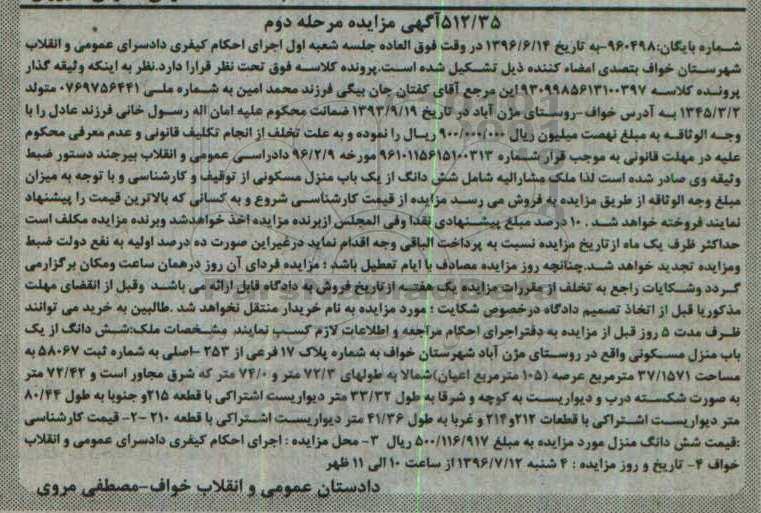 ۵۱۲/۳۵آگهی مزایده مرحله دوم
شماره بایگان:۹۶۰۴۹۸-به تاریخ ۱۳۹۶/۶/۱۴ در وقت فوق العاده جلسه شعبه اول اجرای احکام کیفری دادسرای عمومی و انقلاب
شهرستان خواف بتصدی امضاء کننده ذیل تشکیل شده است.پرونده کلاسه فوق تحت نظر قرارا دارد.نظر به اینکه وثیقه گذار
پرونده کلاسه ۹۳۰۹۹۸۵۶۱۳۱۰۰۳۹۷این مرجع آقای کفتان جان بیگی فرزند محمد امین به شماره ملی ۰۷۶۹۷۵۶۴۴۱ متولد
۱۳۴۵/۳/۲ به آدرس خواف-روستای مژن آباد در تاریخ ۱۳۹۳/۹/۱۹ ضمانت محکوم علیه امان اله رسول خانی فرزند عادل را با
وجه الوثاقه به مبلغ نهصت میلیون ریال ۹۰۰/۰۰۰/۰۰۰ ریال را نموده و به علت تخلف از انجام تکلیف قانونی و عدم معرفی محکوم
علیه در مهلت قانونی به موجب قرار شماره ۹۶۱۰۱۱۵۶۱۵۱۰۰۳۱۳ مورخه ۹۶/۲/۹ دادراسی عمومی و انقلاب بیرجند دستور ضبط
وثیقه وی صادر شده است لذا ملک مشارالیه شامل شش دانگ از یک باب منزل مسکونی از توقیف و کارشناسی و با توجه به میزان
مبلغ وجه الوثاقه از طریق مزایده به فروش می رسد مزایده از قیمت کارشناسی شروع و به کسانی که بالاترین قیمت را پیشنهاد
نمایند فروخته خواهد شد . ۱۰ درصد مبلغ پیشنهادی نقدا وفی المجلس ازبرنده مزایده اخذ خواهدشد وبرنده مزایده مکلف است
حداکثر ظرف یک ماه ازتاریخ مزایده نسبت به پرداخت الباقی وجه اقدام نماید درغیراین صورت ده درصد اولیه به نفع دولت ضبط
ومزایده تجدید خواهد شد.چنانچه روز مزایده مصادف با ایام تعطیل باشد ؛ مزایده فردای آن روز درهمان ساعت ومکان برگزارمی
گردد وشکایات راجع به تخلف از مقررات مزایده یک هفته از تاریخ فروش به دادگاه قابل ارائه می باشد وقبل از انقضای مهلت
مذکوریا قبل از اتخاذ تصمیم دادگاه درخصوص شکایت ؛ مورد مزایده به نام خریدار منتقل نخواهد شد .طالبین به خرید می توانند
ظرف مدت ۵ روز قبل از مزایده به دفتراجرای احکام مراجعه و اطلاعات لازم کسب نمایند. مشخصات ملک:شش دانگ از یک
باب منزل مسکونی واقع در روستای مژن آباد شهرستان خواف به شماره پلاک ۱۷ فرعی از ۲۵۳ -اصلی به شماره ثبت ۵۸۰۶۷ به
مساحت ۳۷/۱۵۷۱ مترمربع عرصه (۱۰۵ مترمربع اعیان)شمالا به طولهای ۷۲/۳ متر و ۷۴/۰ متر که شرق مجاور است و ۷۲/۴۲ متر
به صورت شکسته درب و دیواریست به کوچه و شرقا به طول ۳۳/۳۲ متر دیواریست اشتراکی با قطعه ۲۱۵و جنوبا به طول ۸۰/۴۴
متر دیواریست اشتراکی با قطعات ۲۱۲و۲۱۴ و غربا به طول ۴۱/۳۶ متر دیواریست اشتراکی با قطعه ۲۱۰ -۲- قیمت کارشناسی
:قیمت شش دانگ منزل مورد مزایده به مبلغ ۵۰۰/۱۱۶/۹۱۷ ریال ۳- محل مزایده : اجرای احکام کیفری دادسرای عمومی و انقلاب
خواف ۴- تاریخ و روز مزایده : ۴ شنبه ۱۳۹۶/۷/۱۲ از ساعت ۱۰ الی ۱۱ ظهر
دادستان عمومی و انقلاب خواف-مصطفی مروی